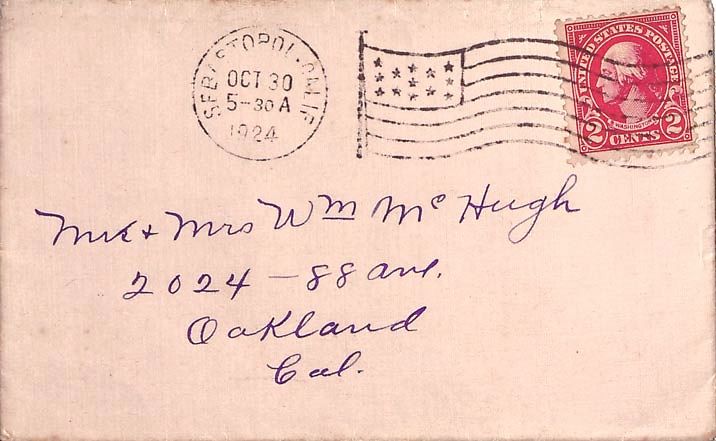 SEBASTOPOL, CALIF.
OCT 30
5-30 A
1924
UNITED STATES POSTAGE
WASHINGTON
2 CENTS 2
Mr & Mrs Wm McHugh
2024 - 88 ave.
Oakland
Cal.